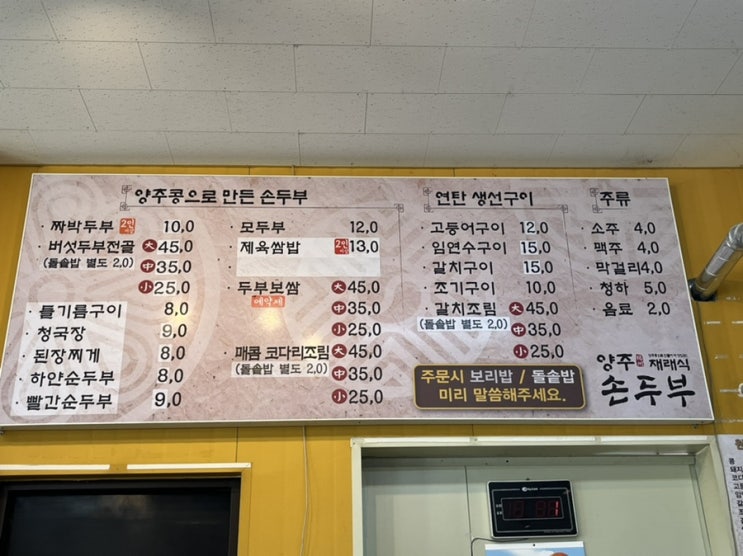 양주콩으로 만든 손두부
· 짜박두부 2인이상 10,0
· 버섯두부전골 大 45,0
(돌솥밥 별도 2,0) 中 35,0
小 25,0
· 들기름구이 8,0
· 청국장 9,0
· 된장찌게 8,0
· 하얀순두부 8,0
· 빨간순두부 9,0
· 모두부 12,0
· 제육쌈밥 2인이상 13,0
· 두부보쌈 大 45,0
예약제 中 35,0
小 25,0
매콤 코다리조림 大 45,0
(돌솥밥 별도 2,0) 中 35,0
小 25,0
연탄 생선구이
· 고등어구이 12,0
· 임연수구이 15,0
· 갈치구이 15,0
· 조기구이 10,0
· 갈치조림 大 45,0
(돌솥밥 별도 2,0) 中 35,0
小 25,0
주류
· 소주 4,0
· 맥주 4,0
· 막걸리 4,0
· 청하 5,0
· 음료 2,0
주문시 보리밥 / 돌솥밥
미리 말씀해주세요.
양주 재래식
손두부